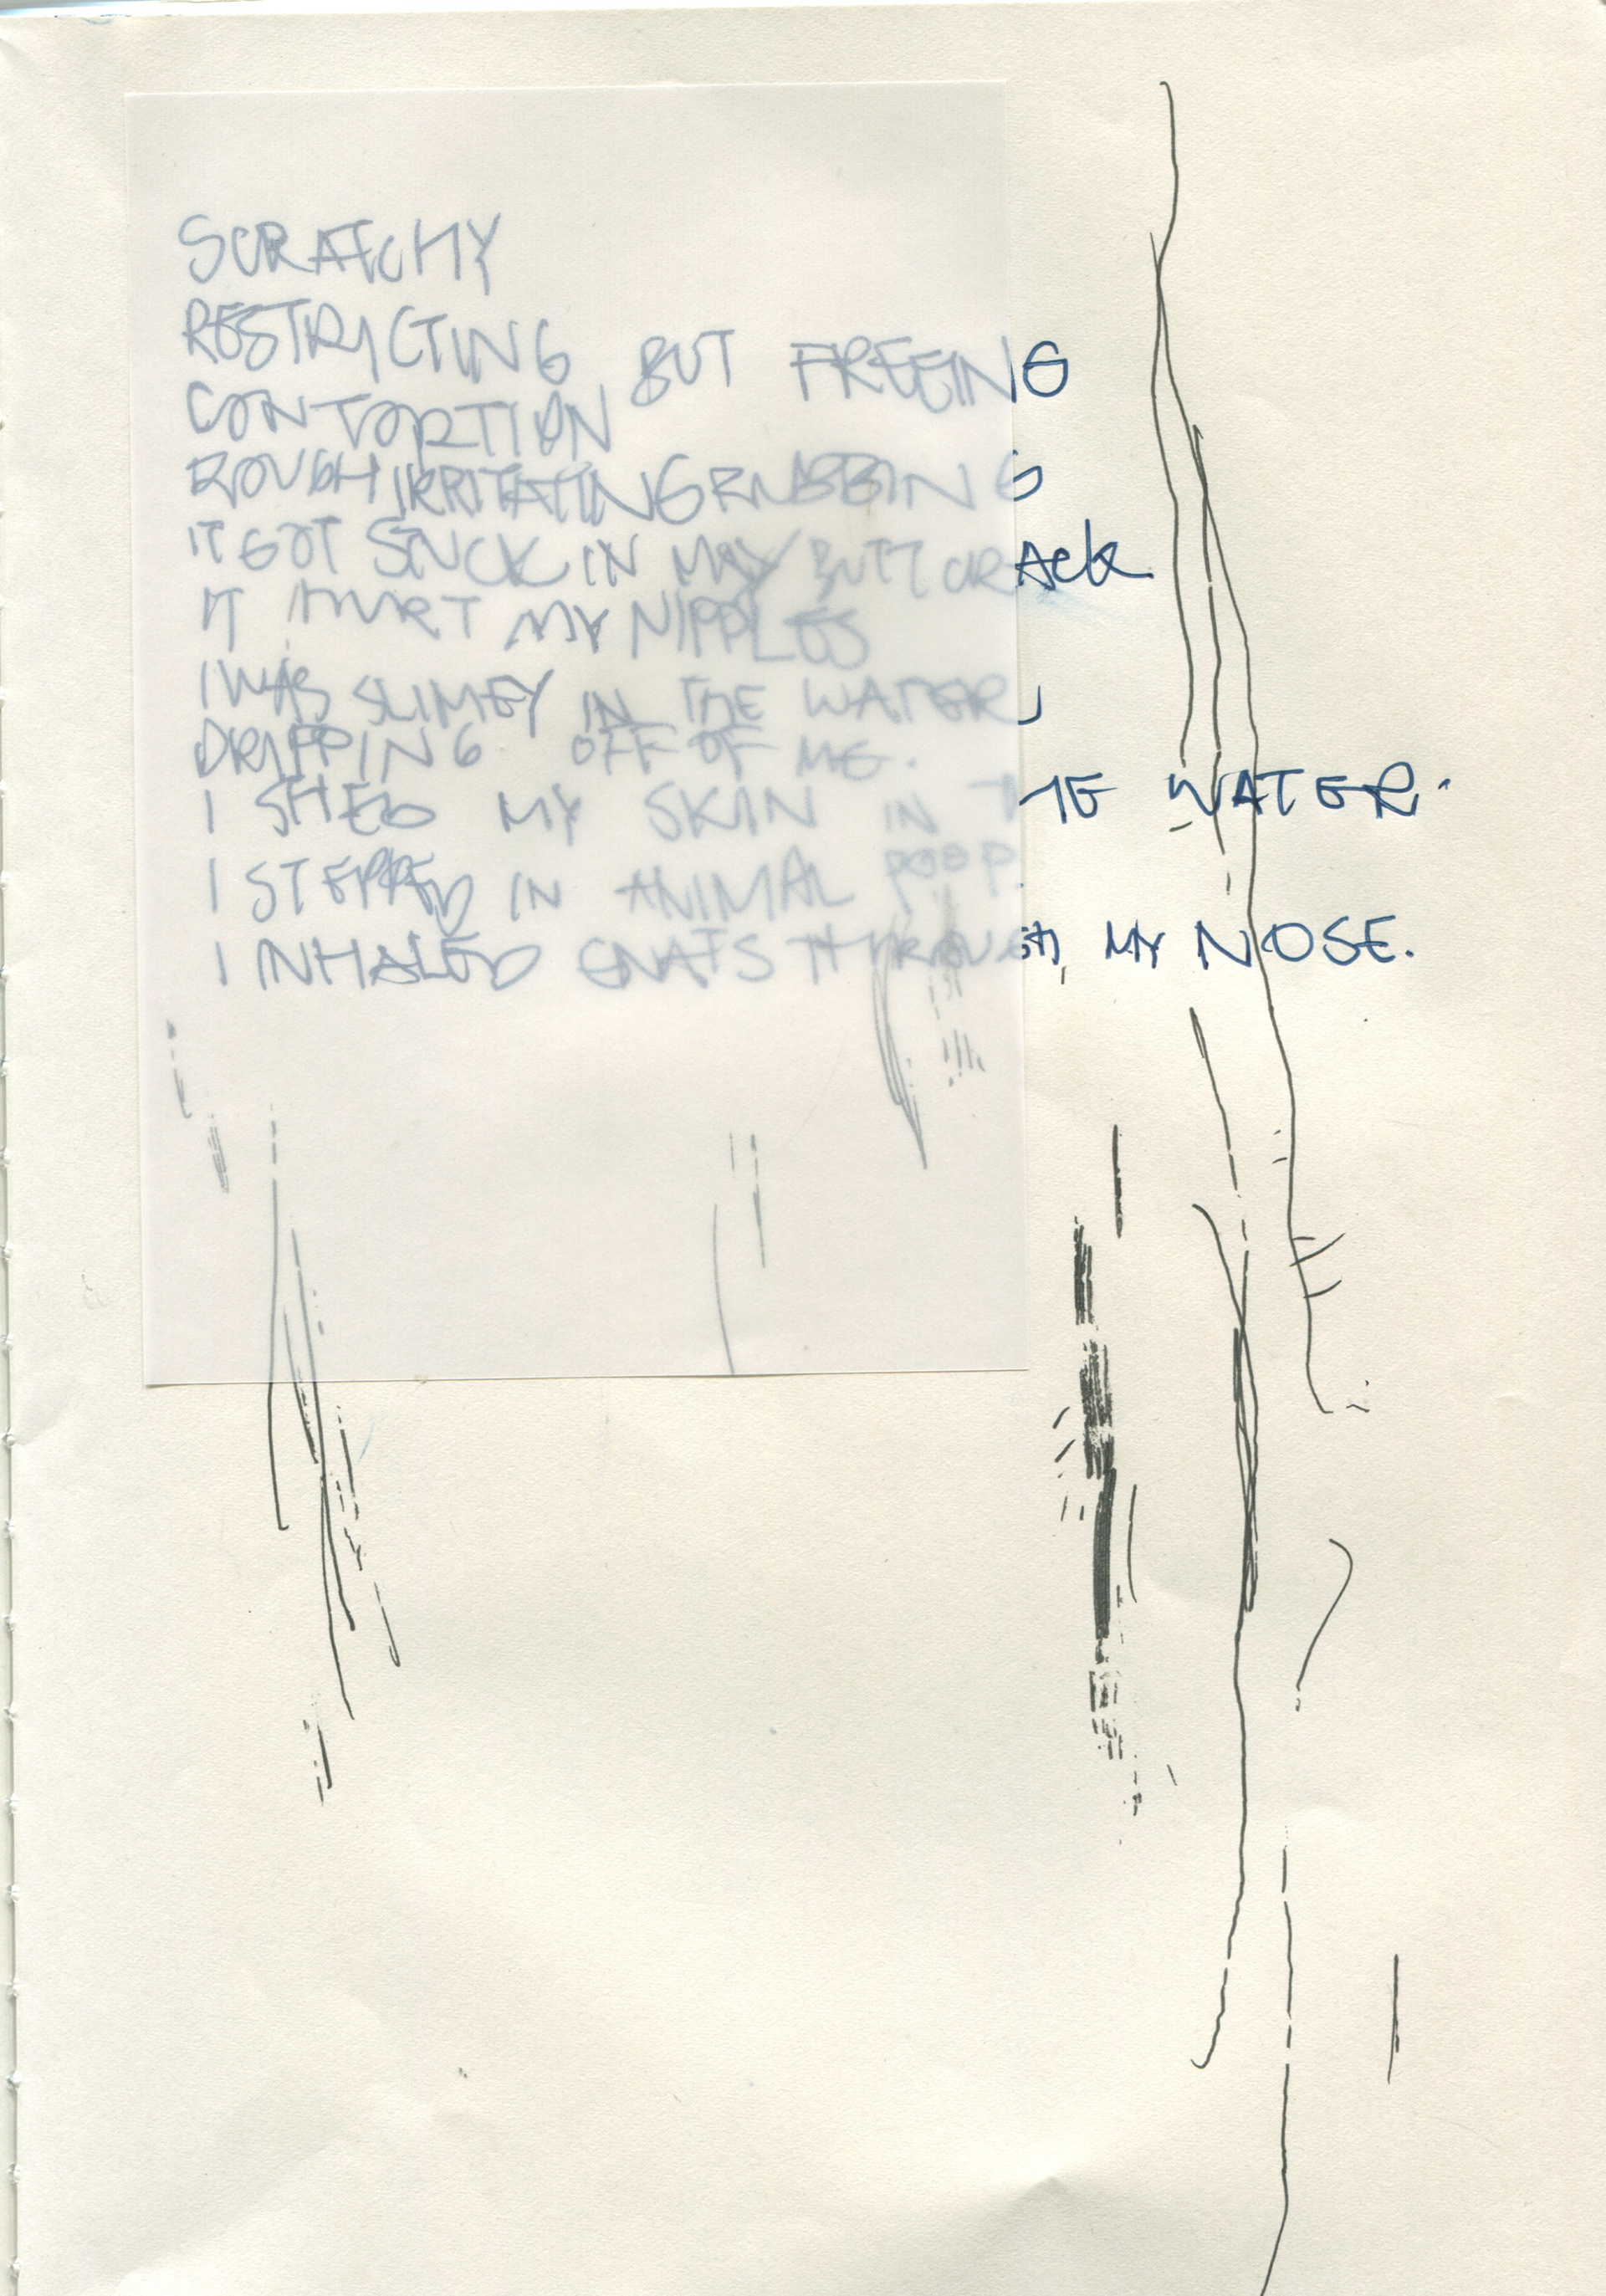 SCRATCHY
RESTRICTING BUT FREEING
CONTORTION
ROUGH IRRITATING RUBBING
IT GOT STUCK IN MY BUTT CRACK
IT HURT MY NIPPLES
I WAS SLIMEY IN THE WATER
DRIPPING OFF OF ME.
I SHED MY SKIN IN THE WATER.
I STEPPED IN ANIMAL POOP.
I INHALED GNATS THROUGH MY NOSE.